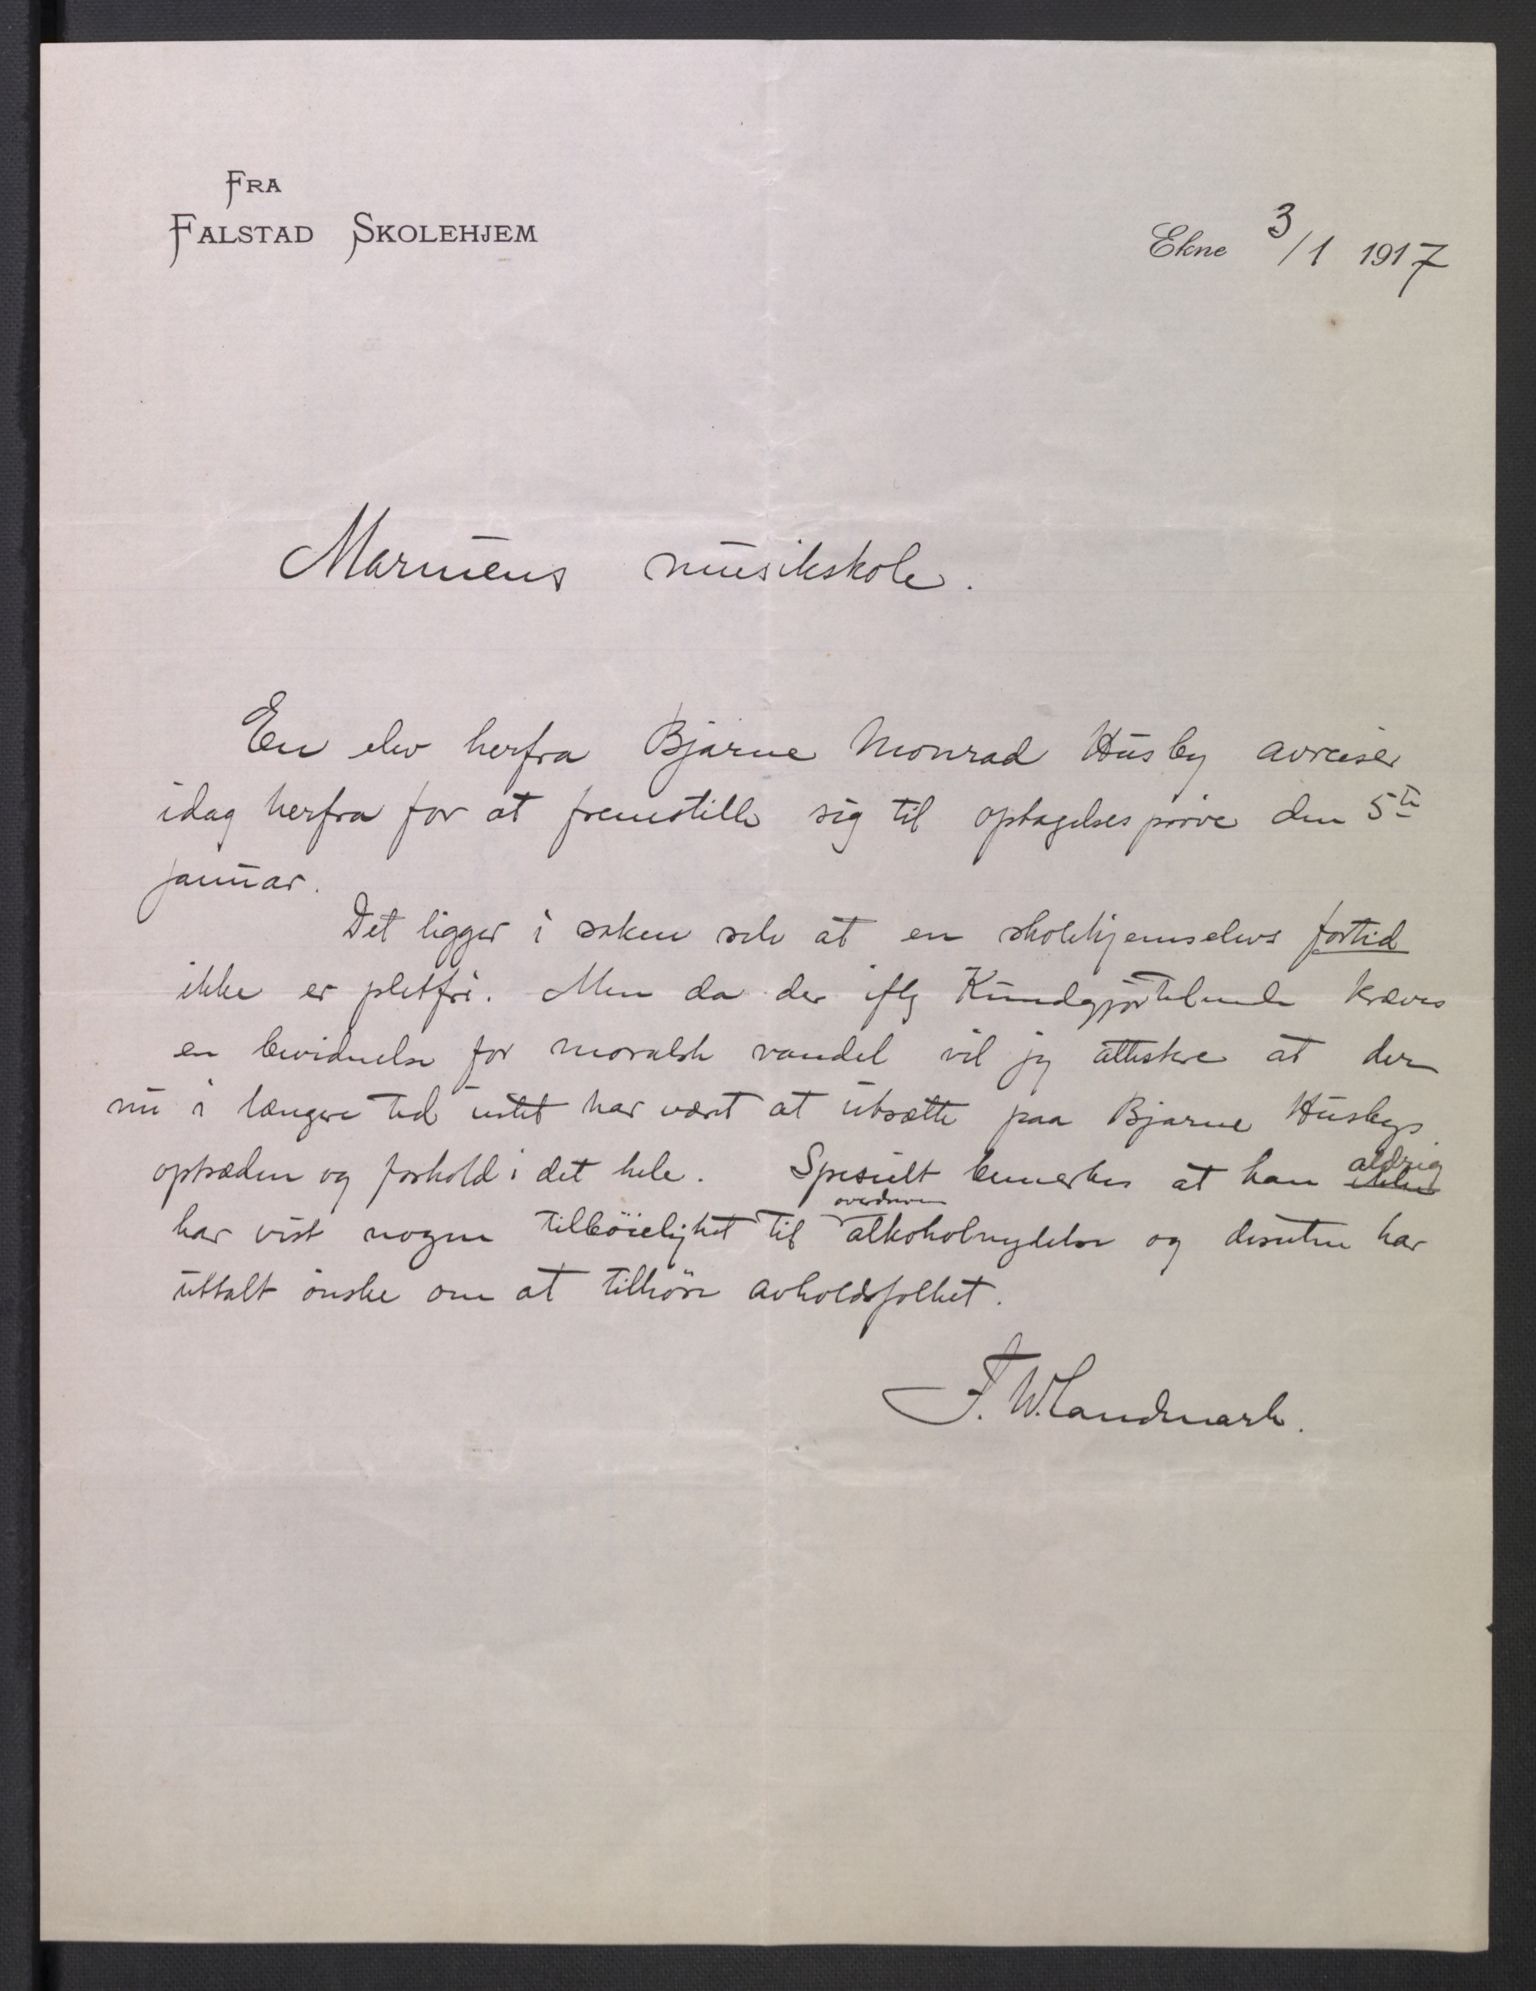 FRA
FALSTAD SKOLEHJEM
Ekne 3/1 1917
Marinens musikskole.
En elev herfra Bjarne Monrad Husby avreiser
idag herfra for at fremstille sig til optagelsesprøve den 5te
januar.
Det ligger i saken selv at en skolehjemselevs fortid
ikke er pletfri. Men da der iflg Kundgjørelsen kræves
en bevidnelse for moralsk vandel vil jeg attestere at der
nu i længere tid intet har været at utsætte paa Bjarne Husbys
optræden og forhold i det hele. Spesielt bemerkes at han aldrig
har vist nogen tilbøielighet til overdreven alkoholnydelse og desuten har
uttalt ønske om at tilhøre avholdsfolket.
F. W. Landmark.